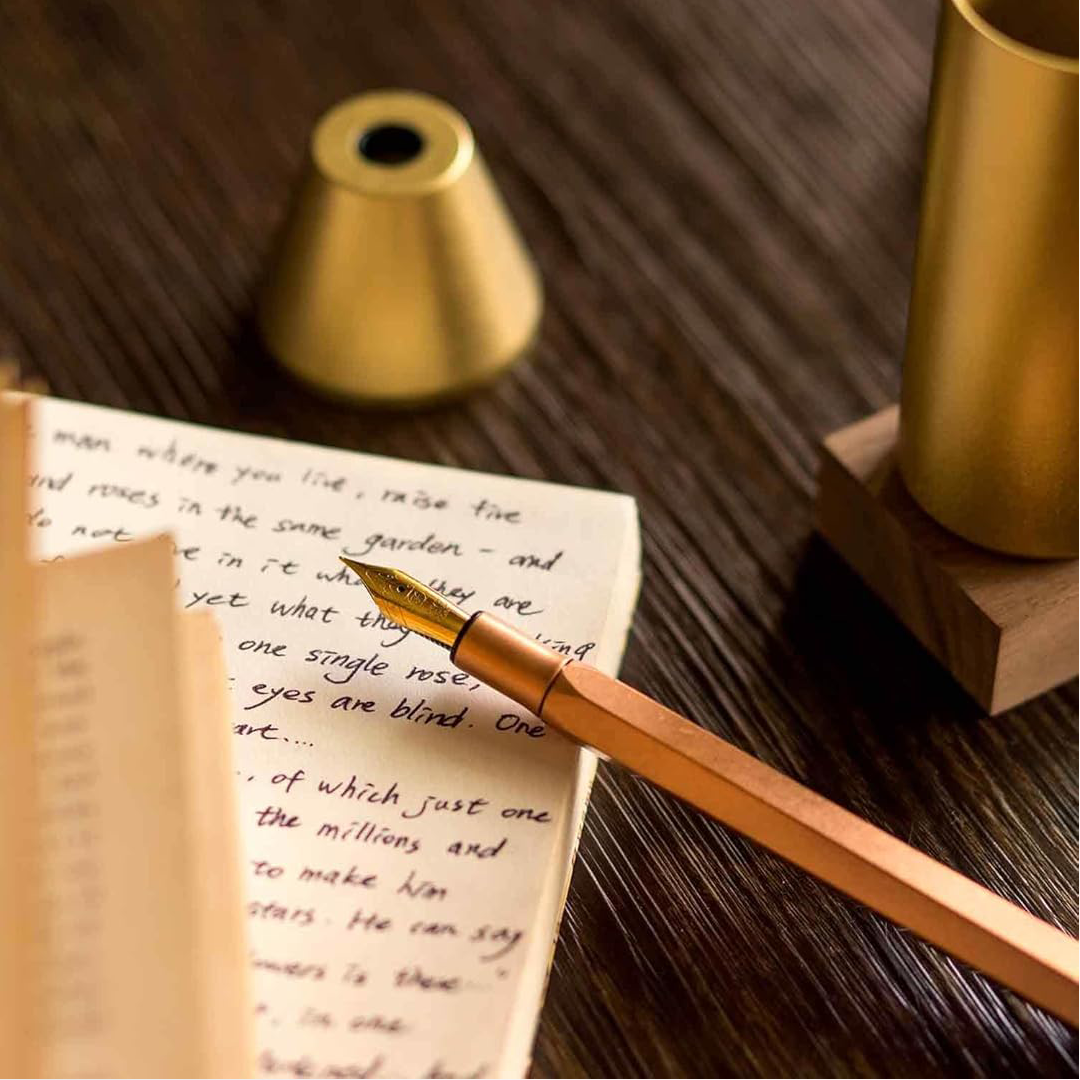 man where you live, raise five
and roses in the same garden - and
do not in it what they are
yet what they
one single rose,
eyes are blind. One
art....
, of which just one
the millions and
to make him
stars. He can say
is there..."
, in one